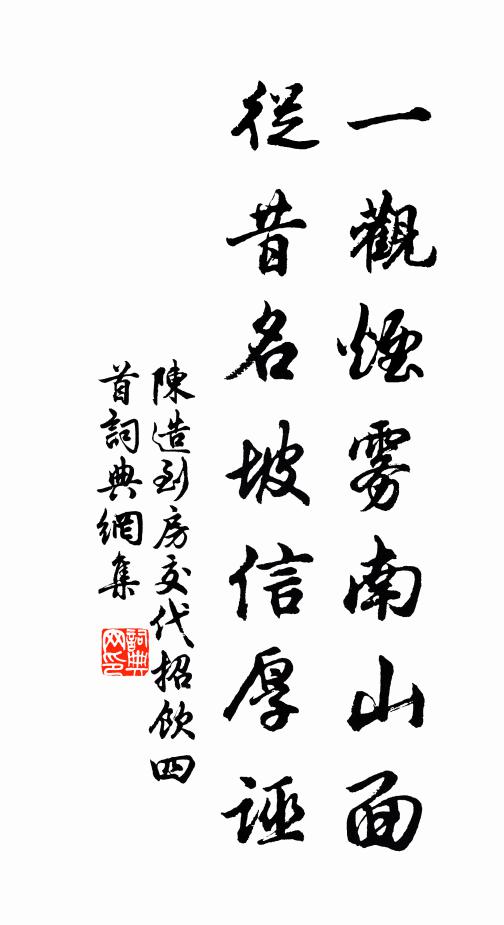 一觀煙雾南山面
從昔名坡信厚誣
陳造到房交代招飲四
首詞典網集
詞典网印